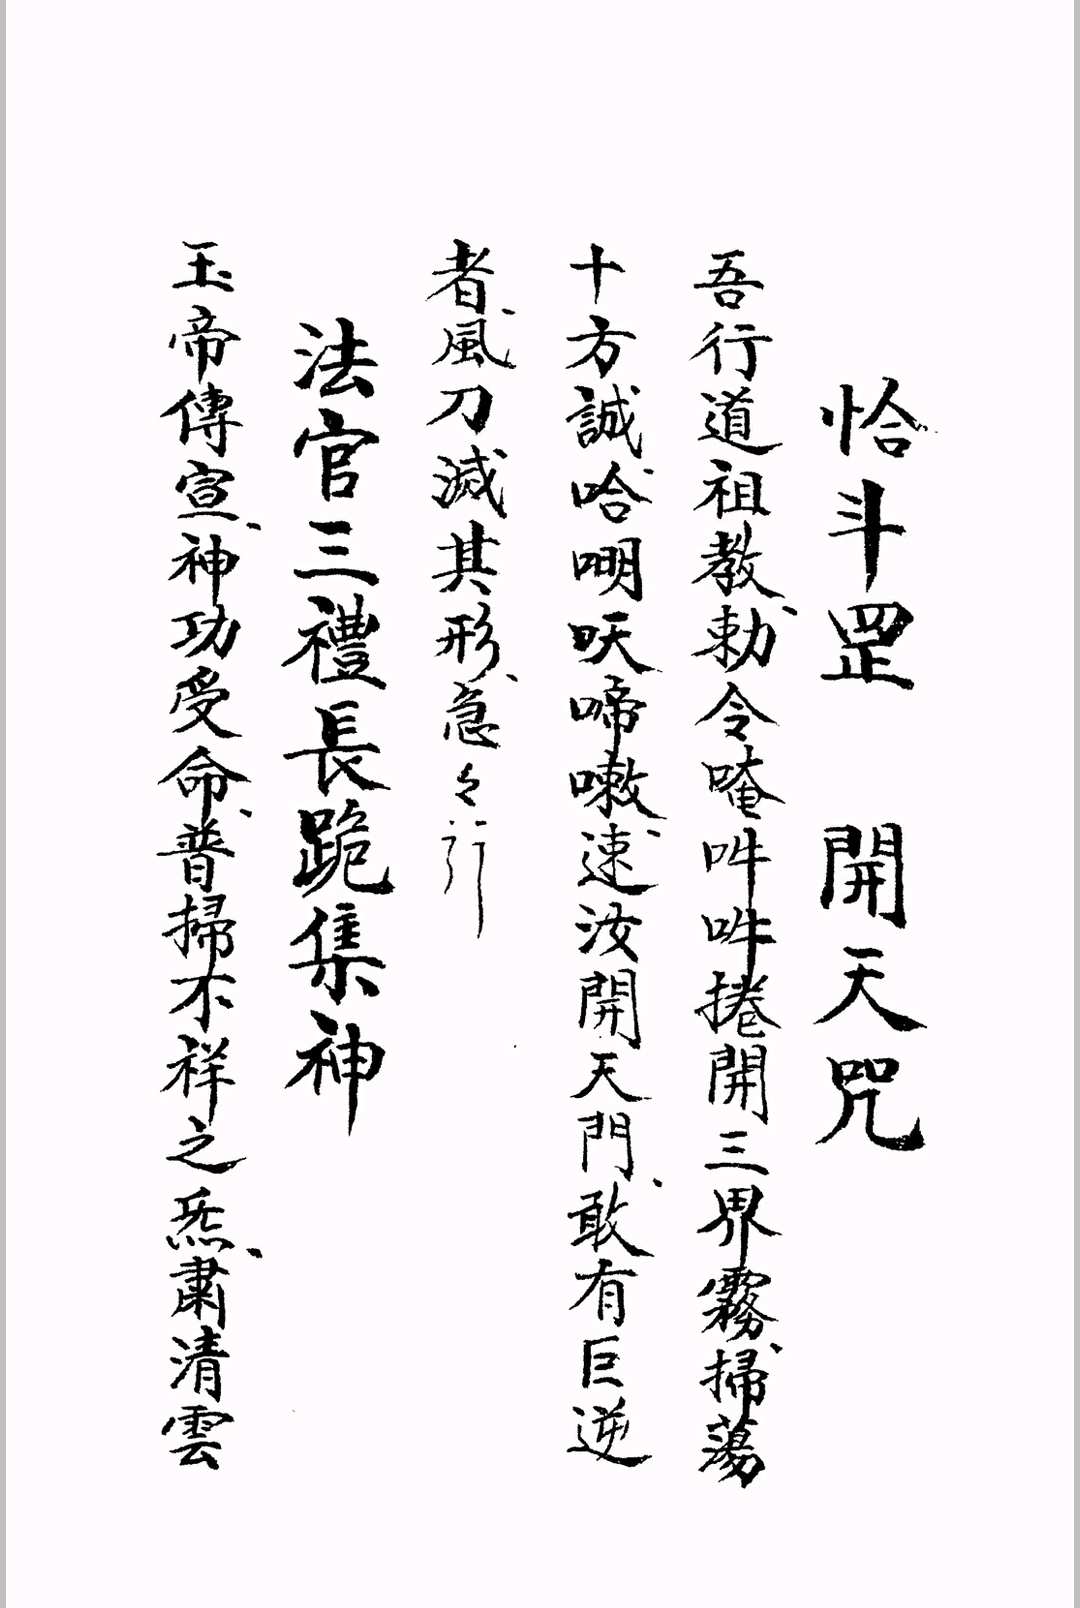 恰斗罡　開天咒
吾行道祖教、勅令唵吽吽捲開三界霧、掃蕩
十方誠、哈、㗿呋啼嗽、速汝開天門、敢有巨逆
者、風刀滅其形、急々行
法官三禮長跪集神
玉帝傳宣、神功受命、普掃不祥之炁、肅清雲